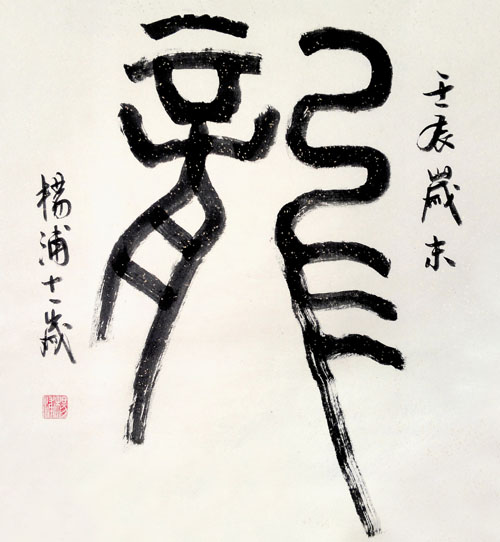 壬辰歲末
龍
楊浦十一歲